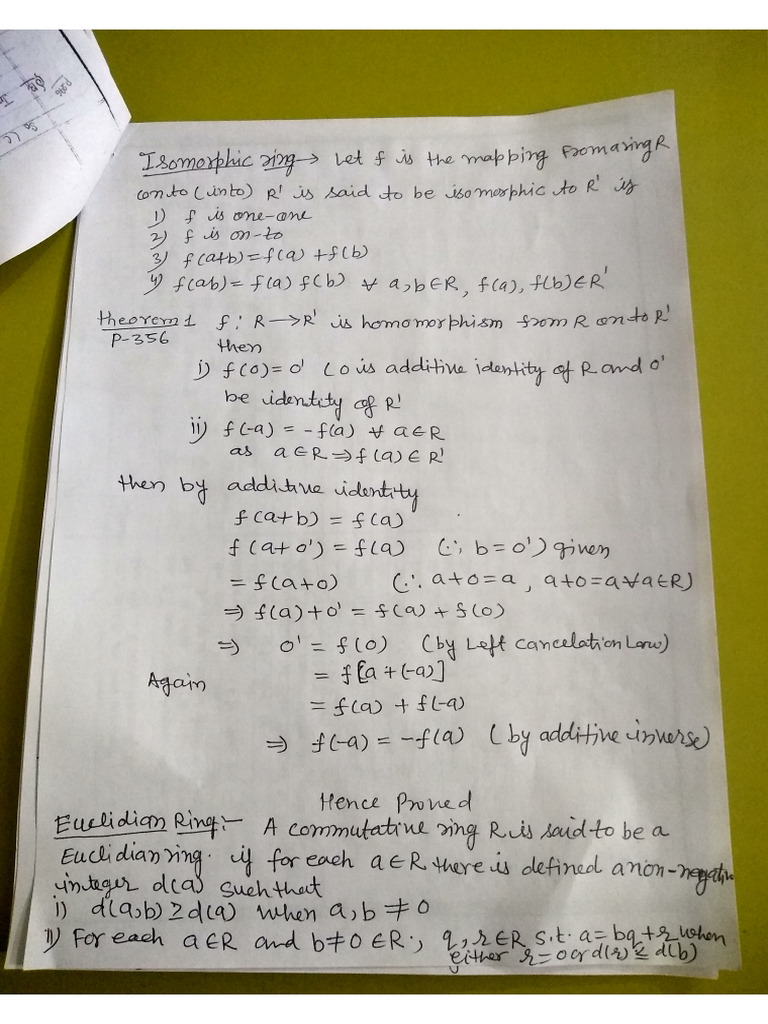 Isomorphic ring → Let f is the mapping From a ring R
onto (into) R' is said to be isomorphic to R' is
1) f is one-one
2) f is on-to
3) f(a+b) = f(a) + f(b)
4) f(ab) = f(a) f(b) ∀ a,b∈R, f(a), f(b)∈R'
theorem 1 f: R → R' is homomorphism from R onto R'
P-356 then
i) f(0) = 0' (0 is additive identity of R and 0'
be identity of R'
ii) f(-a) = -f(a) ∀ a∈R
as a∈R ⇒ f(a) ∈ R'
then by additive identity
f(a+b) = f(a)
f(a+0') = f(a) (∵ b=0') given
= f(a+0) (∵ a+0=a, a+0=a ∀ a∈R)
⇒ f(a)+0' = f(a) + f(0)
⇒ 0' = f(0) (by Left cancelation Law)
Again = f[a+(-a)]
= f(a) + f(-a)
⇒ f(-a) = -f(a) (by additive inverse)
Hence Proved
Euclidian Ring:- A commutative ring R is said to be a
Euclidian ring. if for each a∈R there is defined a non-negativ
integer d(a) such that
i) d(a,b) ≥ d(a) when a,b ≠ 0
ii) For each a∈R and b≠0 ∈R., q, r∈R s.t. a = bq + r when
either r=0 or d(r) ≤ d(b)